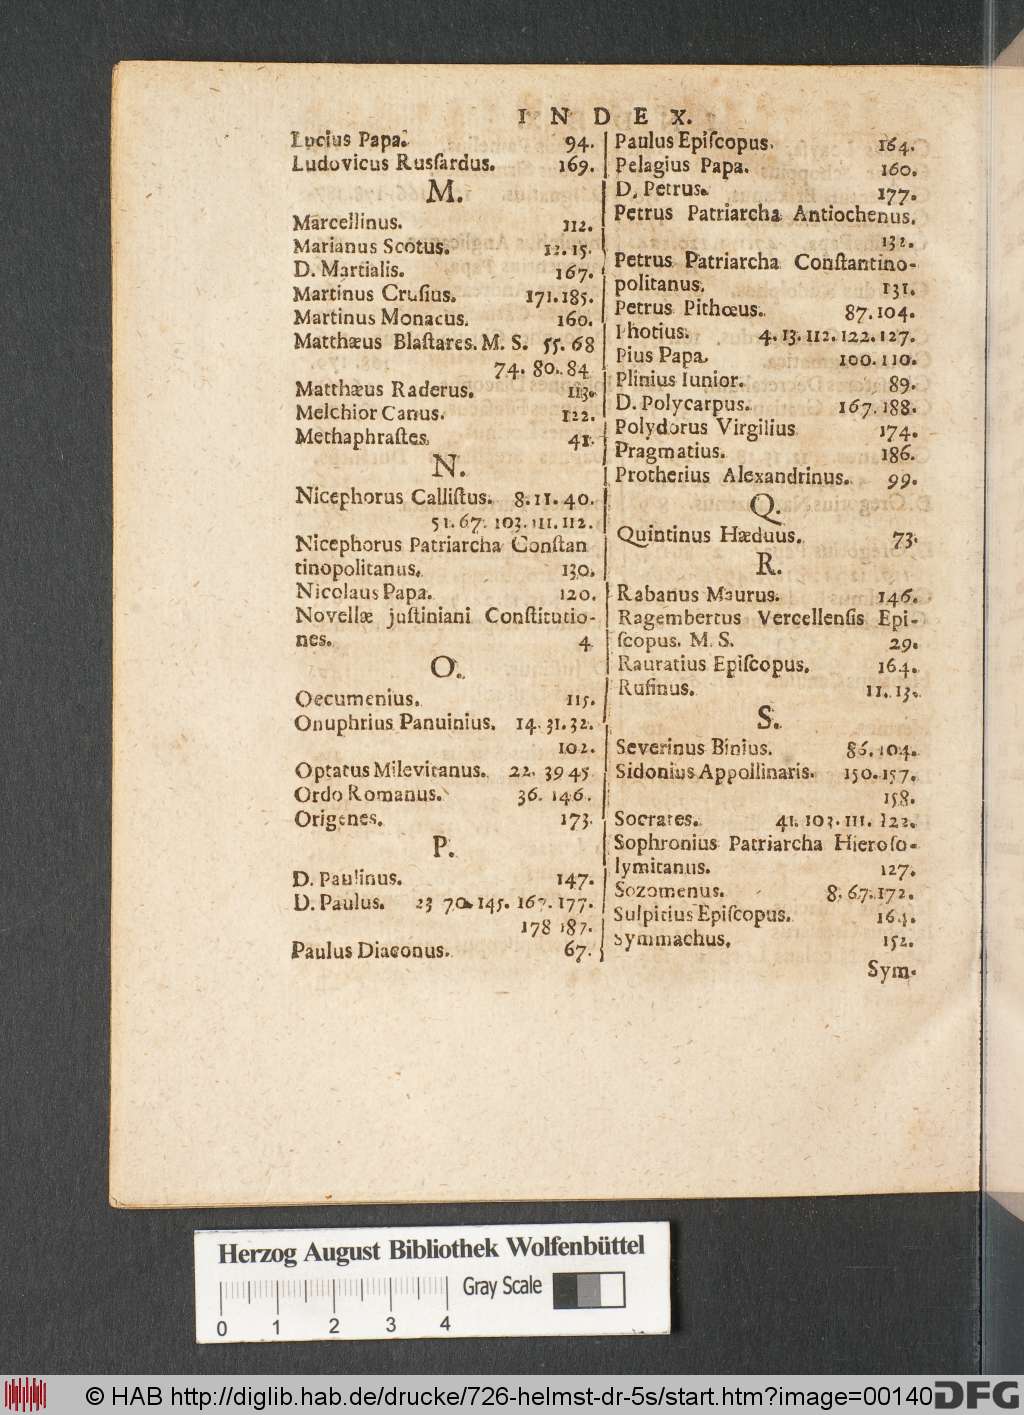 INDEX.
Lucius Papa. 94.
Ludovicus Russardus. 169.
M.
Marcellinus. 112.
Marianus Scotus. 12. 15.
D. Martialis. 167.
Martinus Cruſius. 171. 185.
Martinus Monacus. 160.
Matthæus Blaſtares. M. S. 55. 68
74. 80. 84
Matthæus Raderus. 113.
Melchior Canus. 122.
Methaphraſtes. 41.
N.
Nicephorus Calliſtus. 8. 11. 40.
51. 67. 103. 111. 112.
Nicephorus Patriarcha Conſtan
tinopolitanus. 130.
Nicolaus Papa. 120.
Novellæ juſtiniani Conſtitutio-
nes. 4
O.
Oecumenius. 115.
Onuphrius Panuinius. 14. 31. 32.
102.
Optatus Milevitanus. 22. 39 45
Ordo Romanus. 36. 146.
Origenes. 173.
P.
D. Paulinus. 147.
D. Paulus. 23 70. 145. 167. 177.
178 187.
Paulus Diaconus. 67.
Paulus Epiſcopus. 164.
Pelagius Papa. 160.
D. Petrus. 177.
Petrus Patriarcha Antiochenus.
132.
Petrus Patriarcha Conſtantino-
politanus. 131.
Petrus Pithœus. 87. 104.
Photius. 4. 13. 112. 122. 127.
Pius Papa. 100. 110.
Plinius Iunior. 89.
D. Polycarpus. 167. 188.
Polydorus Virgilius 174.
Pragmatius. 186.
Protherius Alexandrinus. 99.
Q.
Quintinus Hæduus. 73.
R.
Rabanus Maurus. 146.
Ragembertus Vercellenſis Epi-
ſcopus. M. S. 29.
Rauratius Epiſcopus. 164.
Rufinus. 11. 13.
S.
Severinus Binius. 86. 104.
Sidonius Appollinaris. 150. 157.
158.
Socrates. 41. 103. 111. 122.
Sophronius Patriarcha Hieroſo-
lymitanus. 127.
Sozomenus. 8. 67. 172.
Sulpitius Epiſcopus. 164.
Symmachus. 152.
Sym-
Herzog August Bibliothek Wolfenbüttel
Gray Scale
0 1 2 3 4
© HAB http://diglib.hab.de/drucke/726-helmst-dr-5s/start.htm?image=00140
DFG